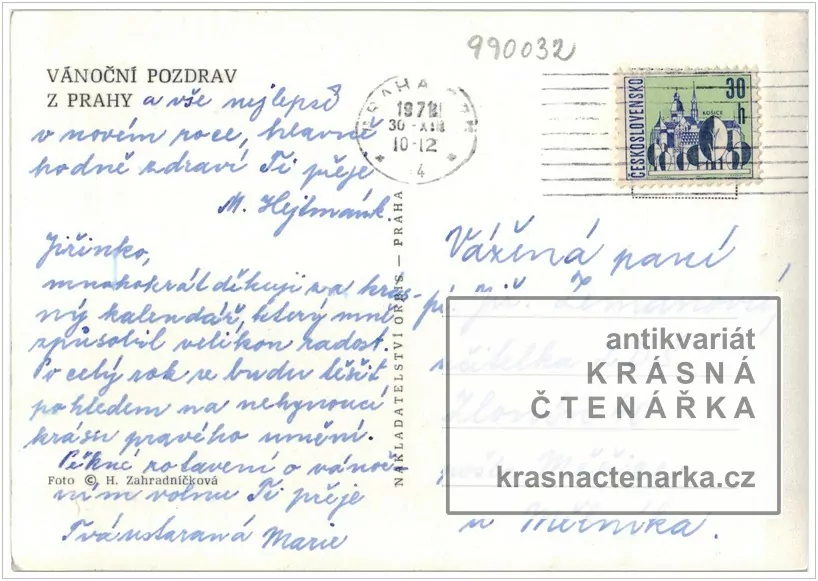 990032
VÁNOČNÍ POZDRAV
Z PRAHY a vše nejlepší
v novém roce, hlavně
hodně zdraví Ti přeje
M. Hejtmánk.
Jiřinko,
mnohokrát děkuji za krás-
ný kalendář, který mně
způsobil velikou radost.
Po celý rok se budu těšit
pohledem na nehynoucí
krásu pravého umění.
Pěkné zotavení o vánoč-
Foto © H. Zahradníčková
ním volnu Ti přeje
Tvá ustaraná Marie
NAKLADATELSTVÍ ORBIS – PRAHA
PRAHA
30 -XII
10-12
4
ČESKOSLOVENSKO
30 h
KOŠICE
Vážená paní,
pí. Jiř. Zemanová,
učitelka
u Mělníka.
antikvariát
KRÁSNÁ
ČTENÁŘKA
krasnactenarka.cz